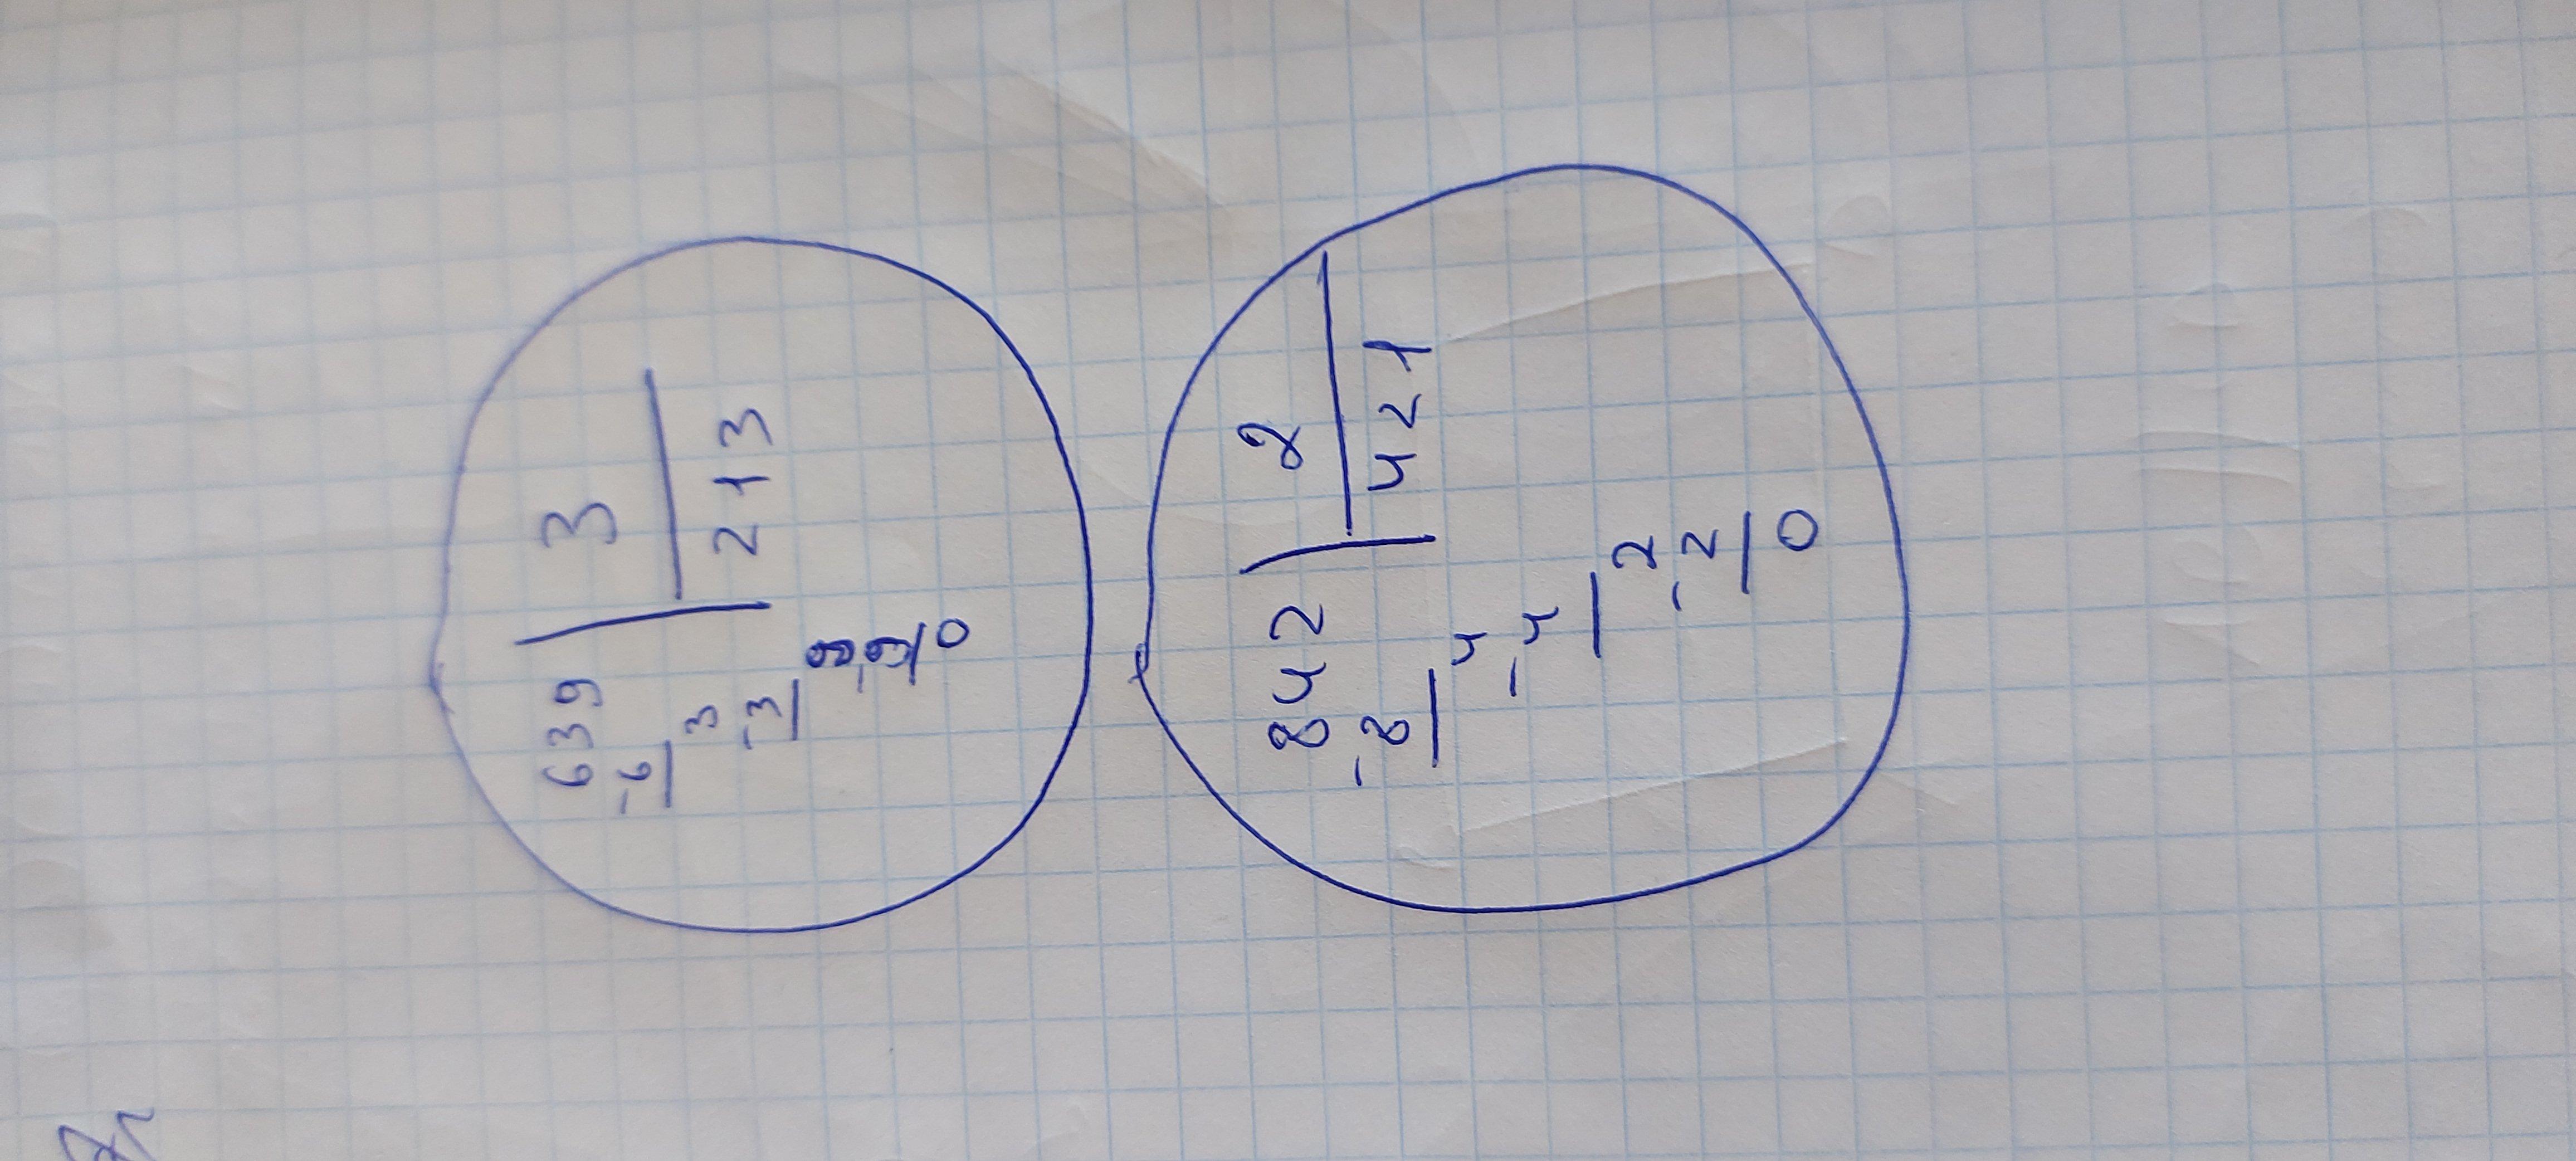 639 3
-6 213
3
-3
9
-9
0
842 2
-8 421
4
-4
2
-2
0